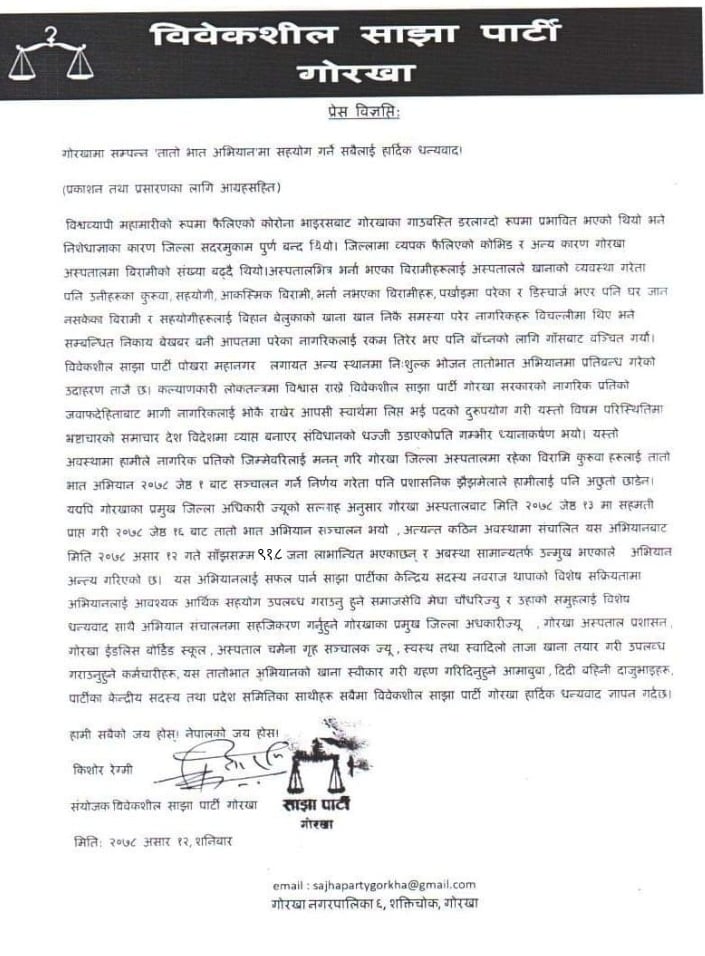 विवेकशील साझा पार्टी
गोरखा
प्रेस विज्ञप्ति:
गोरखामा सम्पन्न 'तातो भात अभियान'मा सहयोग गर्ने सबैलाई हार्दिक धन्यवाद।
(प्रकाशन तथा प्रसारणका लागि आग्रहसहित)
विश्वव्यापी महामारीको रुपमा फैलिएको कोरोना भाइरसबाट गोरखाका गाउबस्ति डरलाग्दो रूपमा प्रभावित भएको थियो भने
निशेधाज्ञाका कारण जिल्ला सदरमुकाम पुर्ण बन्द थियो। जिल्लामा व्यपक फैलिएको कोभिड र अन्य कारण गोरखा
अस्पतालमा बिरामीको संख्या बढ्दै थियो।अस्पतालभित्र भर्ना भएका बिरामीहरूलाई अस्पतालले खानाको व्यवस्था गरेता
पनि उनीहरूका कुरुवा, सहयोगी, आकस्मिक बिरामी, भर्ना नभएका बिरामीहरू, पर्खाइमा परेका र डिस्चार्ज भएर पनि घर जान
नसकेका बिरामी र सहयोगीहरूलाई बिहान बेलुकाको खाना खान निकै समस्या परेर नागरिकहरू विचल्लीमा थिए भने
सम्बन्धित निकाय बेखबर बनी आपतमा परेका नागरिकलाई रकम तिरेर भए पनि बाँच्नको लागि गाँसबाट वञ्चित गर्यो।
विवेकशील साझा पार्टी पोखरा महानगर लगायत अन्य स्थानमा निःशुल्क भोजन तातोभात अभियानमा प्रतिबन्ध गरेको
उदाहरण ताजै छ। कल्याणकारी लोकतन्त्रमा विश्वास राख्ने विवेकशील साझा पार्टी गोरखा सरकारको नागरिक प्रतिको
जवाफदेहिताबाट भागी नागरिकलाई भोकै राखेर आपसी स्वार्थमा लिप्त भई पदको दुरूपयोग गरी यस्तो विषम परिस्थितिमा
भ्रष्टाचारको समाचार देश विदेशमा व्याप्त बनाएर संविधानको धज्जी उडाएकोप्रति गम्भीर ध्यानाकर्षण भयो। यस्तो
अवस्थामा हामीले नागरिक प्रतिको जिम्मेवरिलाई मनन् गरि गोरखा जिल्ला अस्पतालमा रहेका विरामि कुरुवा हरुलाई तातो
भात अभियान २०७८ जेष्ठ १ बाट सञ्चालन गर्ने निर्णय गरेता पनि प्रशासनिक झैझमेलाले हामीलाई पनि अछुतो छाडेन।
यद्यपि गोरखाका प्रमुख जिल्ला अधिकारी ज्यूको सल्लाह अनुसार गोरखा अस्पतालबाट मिति २०७८ जेष्ठ १३ मा सहमती
प्राप्त गरी २०७८ जेष्ठ १६ बाट तातो भात अभियान सञ्चालन भयो , अत्यन्त कठिन अवस्थामा संचालित यस अभियानबाट
मिति २०७८ असार १२ गते साँझसम्म ९१८ जना लाभान्वित भएकाछन् र अवस्था सामान्यतर्फ उन्मुख भएकाले अभियान
अन्त्य गरिएको छ। यस अभियानलाई सफल पार्न साझा पार्टीका केन्द्रिय सदस्य नवराज थापाको विशेष सक्रियतामा
अभियानलाई आवश्यक आर्थिक सहयोग उपलब्ध गराउनु हुने समाजसेवि मेघा चौधरिज्यु र उहाको समुहलाई विशेष
धन्यवाद साथै अभियान संचालनमा सहजिकरण गर्नुहुने गोरखाका प्रमुख जिल्ला अधकारीज्यू , गोरखा अस्पताल प्रशासन ,
गोरखा ईडलिस वोर्डिङ स्कूल , अस्पताल चमेना गृह सञ्चालक ज्यू , स्वस्थ तथा स्वादिलो ताजा खाना तयार गरी उपलब्ध
गराउनुहुने कर्मचारीहरू, यस तातोभात अभियानको खाना स्वीकार गरी ग्रहण गरिदिनुहुने आमाबुबा , दिदी बहिनी दाजुभाइहरू,
पार्टीका केन्द्रीय सदस्य तथा प्रदेश समितिका साथीहरू सबैमा विवेकशील साझा पार्टी गोरखा हार्दिक धन्यवाद ज्ञापन गर्दछ।
हामी सबैको जय होस्! नेपालको जय होस्।
किशोर रेग्मी
संयोजक विवेकशील साझा पार्टी गोरखा
साझा पार्टी
गोरखा
मिति: २०७८ असार १२, शनिबार
email : sajhapartygorkha@gmail.com
गोरखा नगरपालिका ६, शक्तिचोक, गोरखा